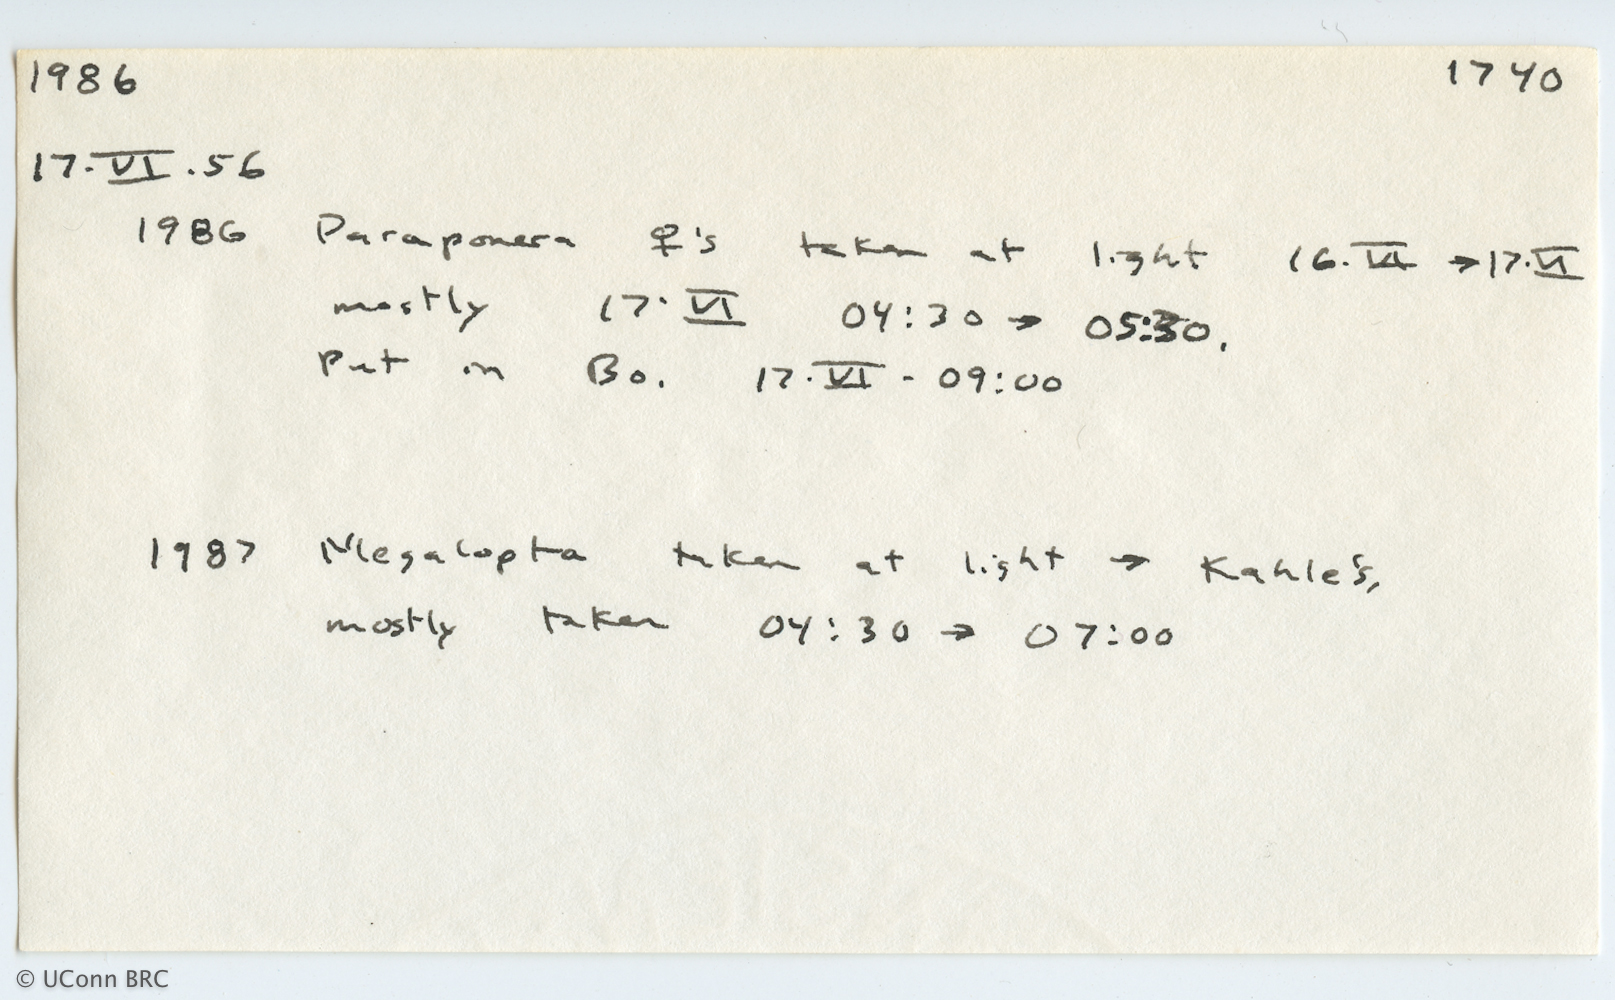 1986 1740
17.VI.56
1986 Paraponera ♀'s taken at light 16.VI → 17.VI
mostly 17.VI 04:30 → 05:30.
Put in Bo. 17.VI - 09:00
1987 Megalopta taken at light → Kahle's,
mostly taken 04:30 → 07:00
© UConn BRC